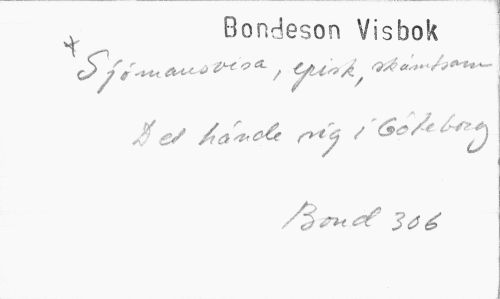 Bondeson Visbok
* Sjömansvisa, episk, skämtsam
Det hände sig i Göteborg
Bond 306